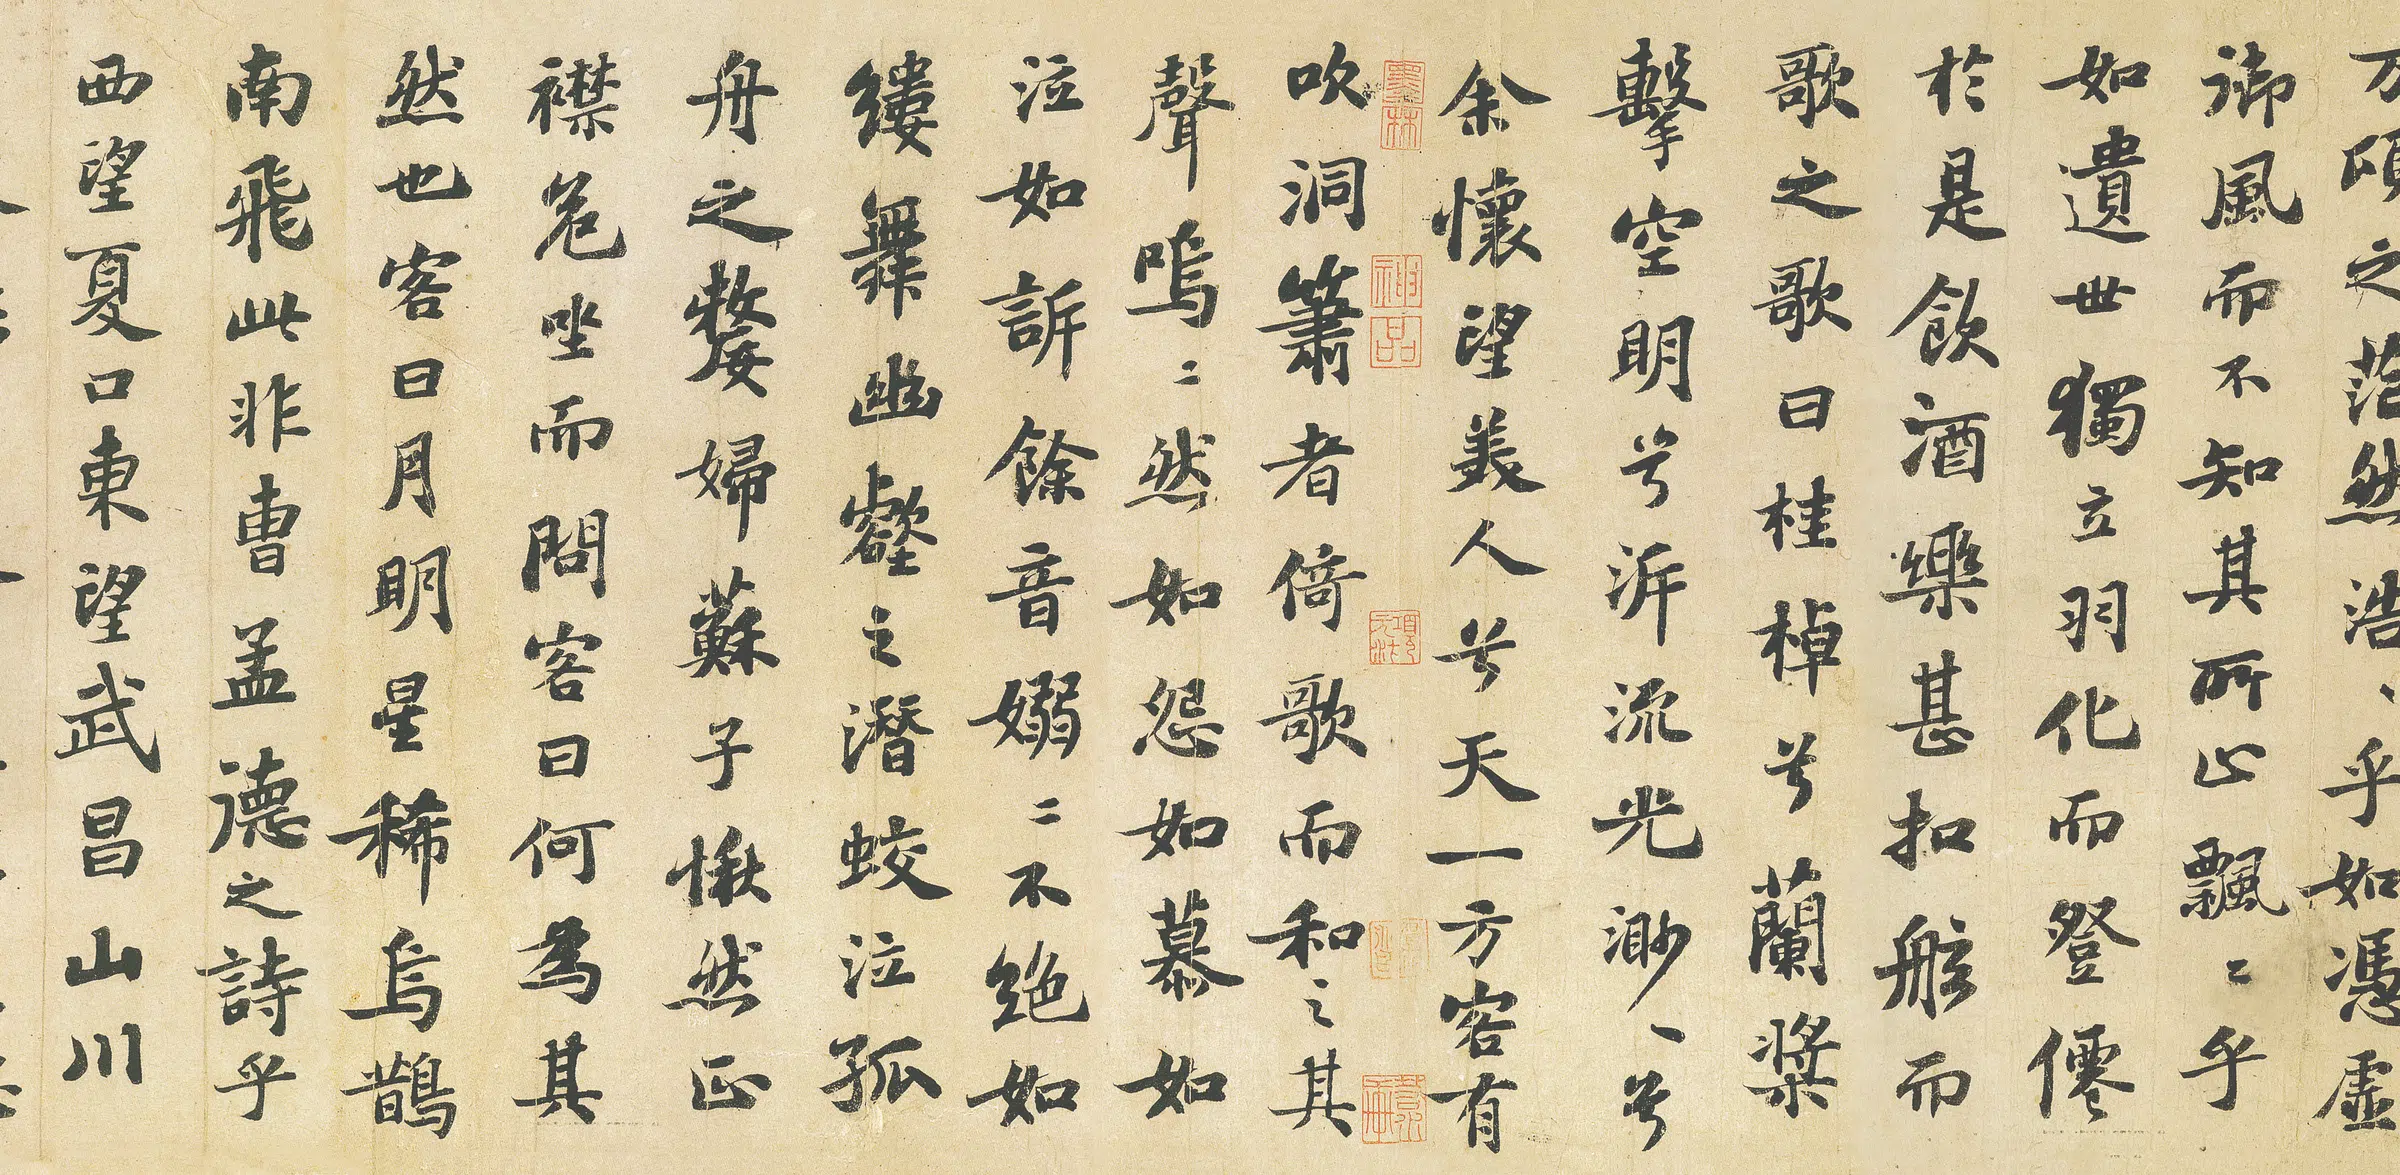 万頃之茫然浩、乎如馮虛
御風而不知其所止飄〻乎
如遺世獨立羽化而登僊
於是飲酒樂甚扣舷而
歌之歌曰桂棹兮蘭槳
擊空明兮泝流光渺〻兮
余懷望美人兮天一方客有
吹洞簫者倚歌而和之其
聲嗚〻然如怨如慕如
泣如訴餘音嫋〻不絕如
縷舞幽壑之潛蛟泣孤
舟之嫠婦蘇子愀然正
襟危坐而問客曰何為其
然也客曰月明星稀烏鵲
南飛此非曹孟德之詩乎
西望夏口東望武昌山川